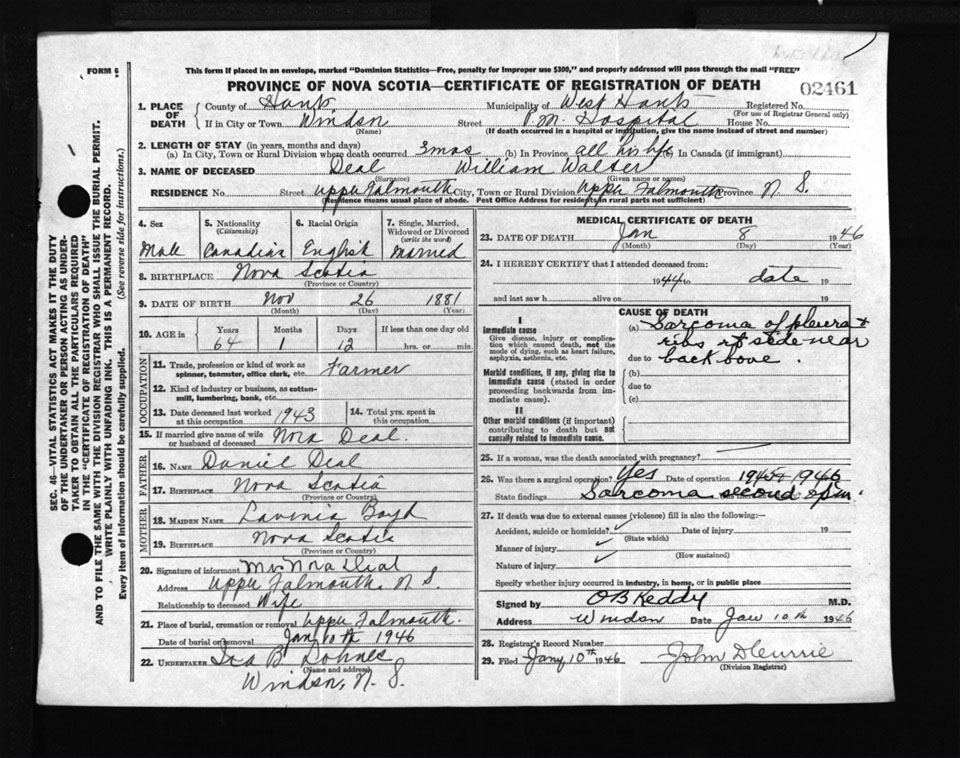 FORM 6
This form if placed in an envelope, marked "Dominion Statistics—Free, penalty for improper use $300," and properly addressed will pass through the mail "FREE"
PROVINCE OF NOVA SCOTIA—CERTIFICATE OF REGISTRATION OF DEATH
02461
SEC. 46—VITAL STATISTICS ACT MAKES IT THE DUTY
OF THE UNDERTAKER OR PERSON ACTING AS UNDER-
TAKER TO OBTAIN ALL THE PARTICULARS REQUIRED
IN THE "CERTIFICATE OF REGISTRATION OF DEATH"
AND TO FILE THE SAME WITH THE DIVISION REGISTRAR WHO SHALL ISSUE THE BURIAL PERMIT.
WRITE PLAINLY WITH UNFADING INK. THIS IS A PERMANENT RECORD.
Every item of information should be carefully supplied. (See reverse side for instructions.)
1. PLACE OF DEATH County of Hants Municipality of West Hants Registered No.
(For use of Registrar General only)
If in City or Town Windsor Street P.M. Hospital House No.
(Name) (If death occurred in a hospital or institution, give the name instead of street and number)
2. LENGTH OF STAY (in years, months and days)
(a) In City, Town or Rural Division where death occurred 3 mos (b) In Province all his life (c) In Canada (if immigrant)
3. NAME OF DECEASED Deal William Walter
(Surname) (Given name or names)
RESIDENCE No. Street Upper Falmouth City, Town or Rural Division Upper Falmouth Province N. S.
(Residence means usual place of abode. Post Office Address for residents in rural parts not sufficient)
4. Sex
Male
5. Nationality (Citizenship)
Canadian
6. Racial Origin
English
7. Single, Married, Widowed or Divorced (write the word)
Married
8. BIRTHPLACE Nova Scotia
(Province or Country)
9. DATE OF BIRTH Nov 26 1881
(Month) (Day) (Year)
10. AGE in Years Months Days If less than one day old
64 1 12 hrs. or min.
OCCUPATION
11. Trade, profession or kind of work as spinner, teamster, office clerk, etc. Farmer
12. Kind of industry or business, as cotton-mill, lumbering, bank, etc.
13. Date deceased last worked at this occupation 1943
14. Total yrs. spent in this occupation
15. If married give name of wife or husband of deceased Nora Deal.
FATHER
16. NAME Daniel Deal
17. BIRTHPLACE Nova Scotia
(Province or Country)
MOTHER
18. MAIDEN NAME Lavinia Boyd
19. BIRTHPLACE Nova Scotia
(Province or Country)
20. Signature of informant Mrs Nora Deal
Address Upper Falmouth, N. S.
Relationship to deceased Wife
21. Place of burial, cremation or removal Upper Falmouth.
Date of burial or removal Jan 10th 1946
22. UNDERTAKER Ira B Lohnes
(Name and address)
Windsor, N. S.
MEDICAL CERTIFICATE OF DEATH
23. DATE OF DEATH Jan 8 1946
(Month) (Day) (Year)
24. I HEREBY CERTIFY that I attended deceased from:
1944 to date 19
and last saw h alive on 19
CAUSE OF DEATH
I
Immediate cause
Give disease, injury or complication which caused death, not the mode of dying, such as heart failure, asphyxia, asthenia, etc.
(a) Sarcoma of pleura +
ribs rt side near
due to back bone.
Morbid conditions, if any, giving rise to immediate cause (stated in order proceeding backwards from immediate cause).
(b)
due to
(c)
II
Other morbid conditions (if important) contributing to death but not causally related to immediate cause.
25. If a woman, was the death associated with pregnancy?
26. Was there a surgical operation? Yes Date of operation 1945 + 1946
State findings Sarcoma second opin.
27. If death was due to external causes (violence) fill in also the following:—
Accident, suicide or homicide? ✓ Date of injury 19
(State which)
Manner of injury ✓
(How sustained)
Nature of injury ✓
Specify whether injury occurred in industry, in home, or in public place
Signed by O B Keddy M.D.
Address Windsor Date Jan 10th 1946
28. Registrar's Record Number
29. Filed Jany 10th 1946 John D Currie
(Division Registrar)